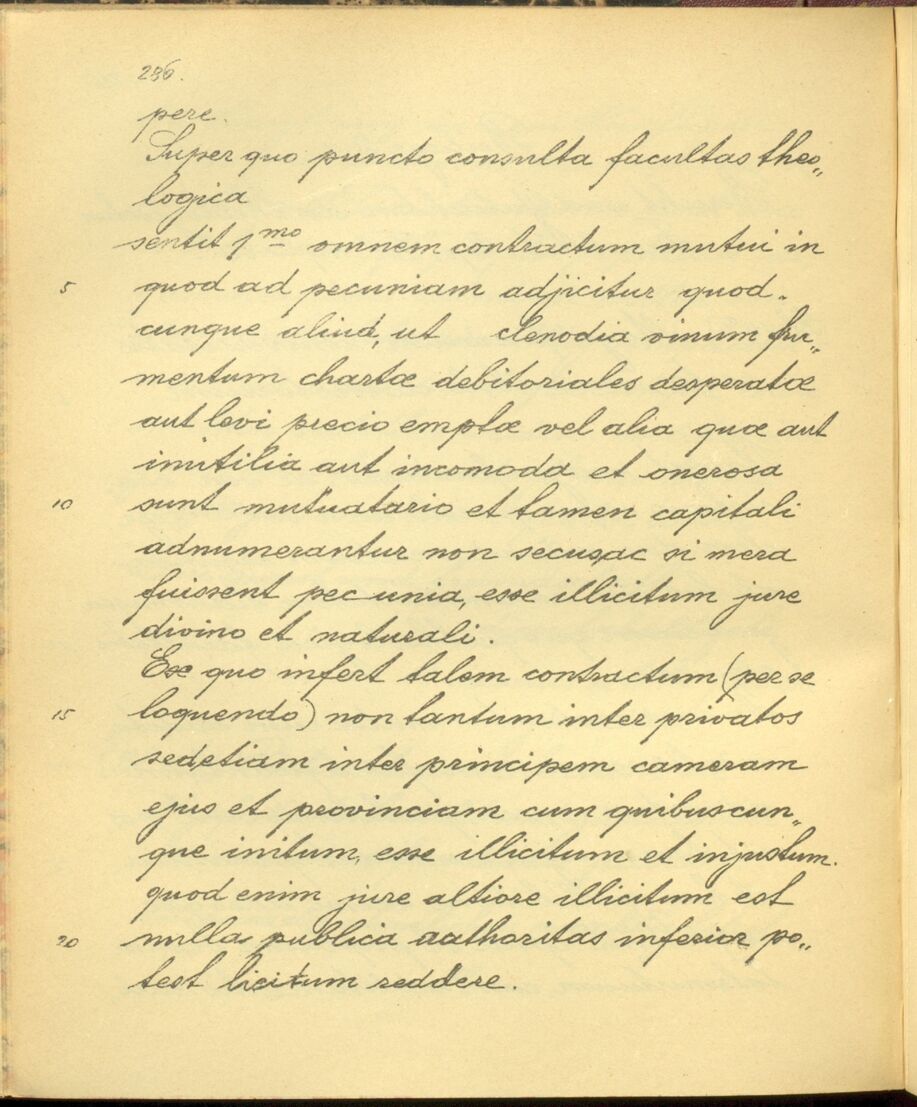 236.
pere.
Super quo puncto consulta facultas theo„
logica
sentit 1mo omnem contractum mutui in
5 quod ad pecuniam adjicitur quod-
cunque aliud, ut clenodia vinum fru„
mentum chartæ debitoriales desperatæ
aut levi precio emptæ vel alia quæ aut
inutilia aut incomoda et onerosa
10 sunt mutuatario et tamen capitali
adnumerantur non secus, ac si mera
fuissent pecunia, esse illicitum jure
divino et naturali.
Ex quo infert talem contractum (per se
15 loquendo) non tantum inter privatos
sed etiam inter principem cameram
ejus et provinciam cum quibuscun„
que initum, esse illicitum et injustum.
quod enim jure altiore illicitum est
20 nulla publica authoritas inferior po„
test licitum reddere.